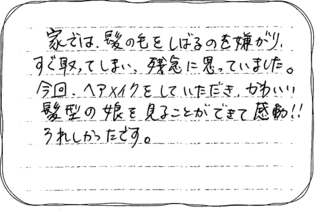 家では、髪の毛をしばるのを嫌がり、
すぐ取ってしまい、残念に思っていました。
今回、ヘアメイクをしていただき、かわいい
髪型の娘を見ることができて感動!!
うれしかったです。